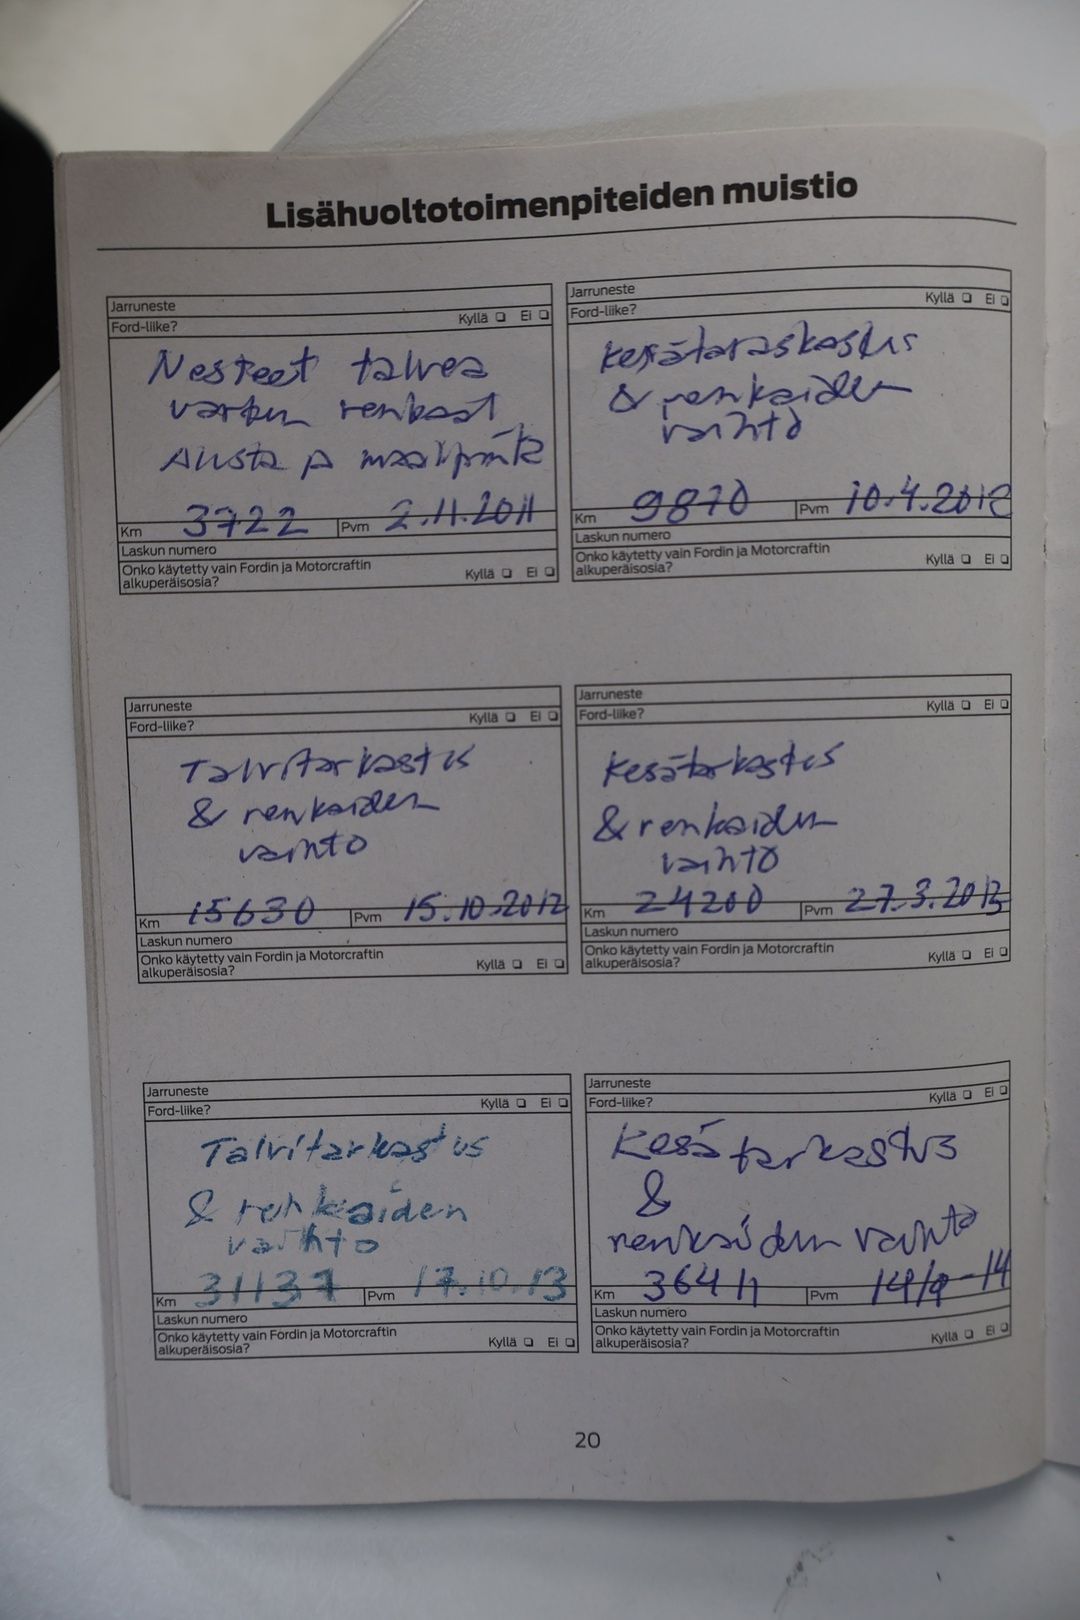 Lisähuoltotoimenpiteiden muistio
Jarruneste
Ford-liike? Kyllä ❏ Ei ❏
Nesteet talvea
varten renkaat
Alusta ja maalipinta
Km 3722 Pvm 2.11.2011
Laskun numero
Onko käytetty vain Fordin ja Motorcraftin
alkuperäisosia? Kyllä ❏ Ei ❏
Jarruneste
Ford-liike? Kyllä ❏ Ei ❏
kesätaraskastus
& renkaiden
vaihto
Km 9870 Pvm 10.4.2012
Laskun numero
Onko käytetty vain Fordin ja Motorcraftin
alkuperäisosia? Kyllä ❏ Ei ❏
Jarruneste
Ford-liike? Kyllä ❏ Ei ❏
Talvitarkastus
& renkaiden
vaihto
Km 15630 Pvm 15.10.2012
Laskun numero
Onko käytetty vain Fordin ja Motorcraftin
alkuperäisosia? Kyllä ❏ Ei ❏
Jarruneste
Ford-liike? Kyllä ❏ Ei ❏
Kesätarkastus
& renkaiden
vaihto
Km 24200 Pvm 27.3.2013
Laskun numero
Onko käytetty vain Fordin ja Motorcraftin
alkuperäisosia? Kyllä ❏ Ei ❏
Jarruneste
Ford-liike? Kyllä ❏ Ei ❏
Talvitarkastus
& renkaiden
vaihto
Km 31137 Pvm 17.10.13
Laskun numero
Onko käytetty vain Fordin ja Motorcraftin
alkuperäisosia? Kyllä ❏ Ei ❏
Jarruneste
Ford-liike? Kyllä ❏ Ei ❏
Kesätarkastus
&
renkaiden vaihto
Km 36411 Pvm
Laskun numero
Onko käytetty vain Fordin ja Motorcraftin
alkuperäisosia? Kyllä ❏ Ei ❏
20